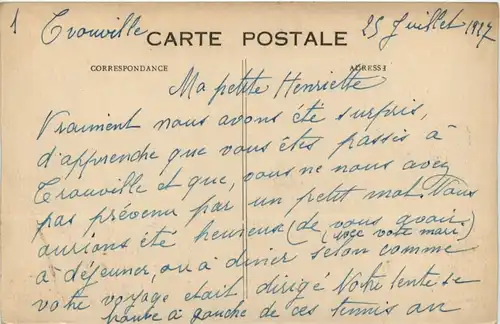 1
Trouville
25 Juillet 1927
CARTE POSTALE
CORRESPONDANCE
ADRESSE
Ma petite Henriette
Vraiment nous avons été surpris,
d'apprendre que vous êtes passés à
Trouville et que, vous ne nous avez
pas prévenu par un petit mot. Nous
aurions été heureuse (de vous avoir
(avec votre mari)
à déjeuner, ou à diner selon comme
votre voyage etait dirigé Notre tente se
trouve à gauche de ces tennis au